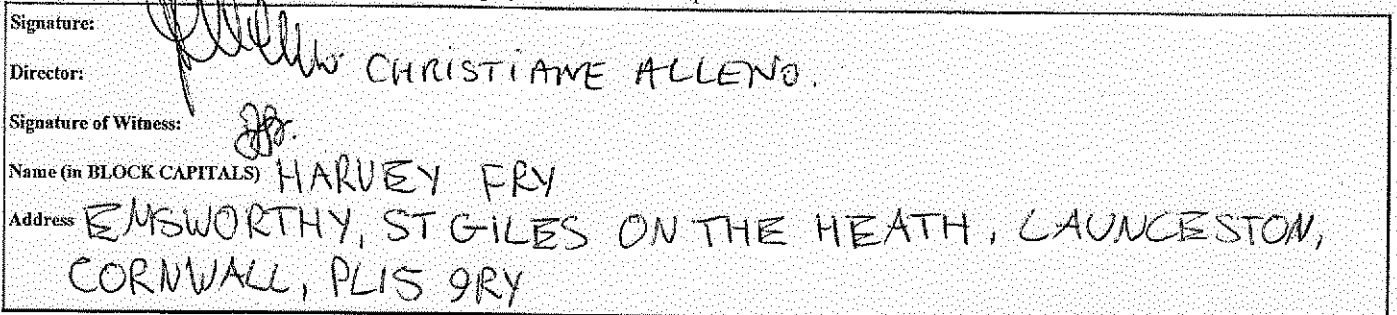 Signature:
Director: CHRISTIANE ALLENO.
Signature of Witness:
Name (in BLOCK CAPITALS) HARVEY FRY
Address EMSWORTHY, ST GILES ON THE HEATH, LAUNCESTON,
CORNWALL, PL15 9RY